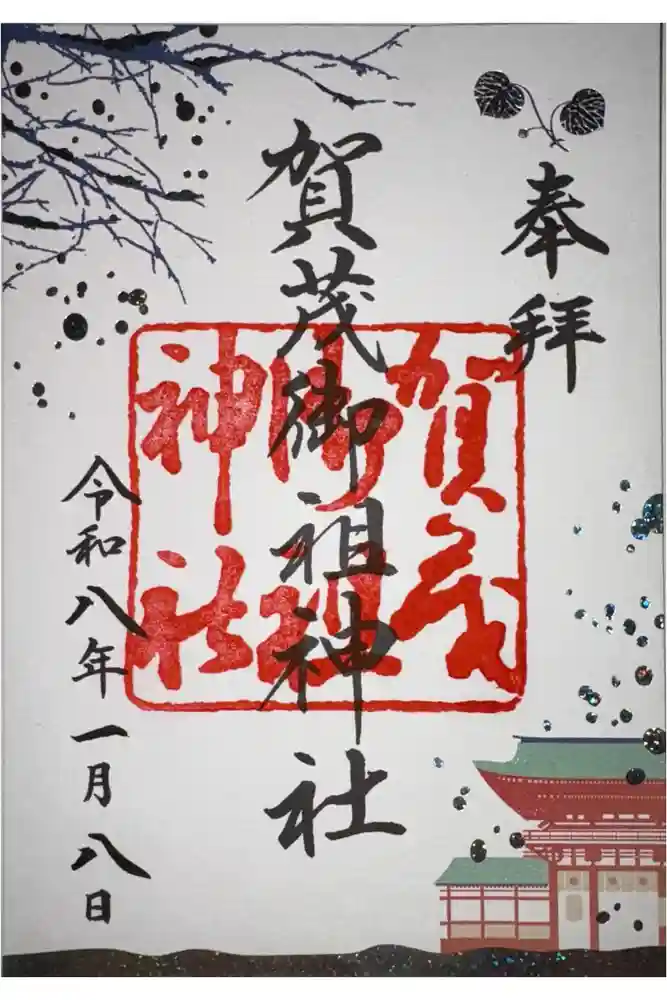 奉拝
賀茂御祖神社
賀茂
御祖
神社
令和八年一月八日